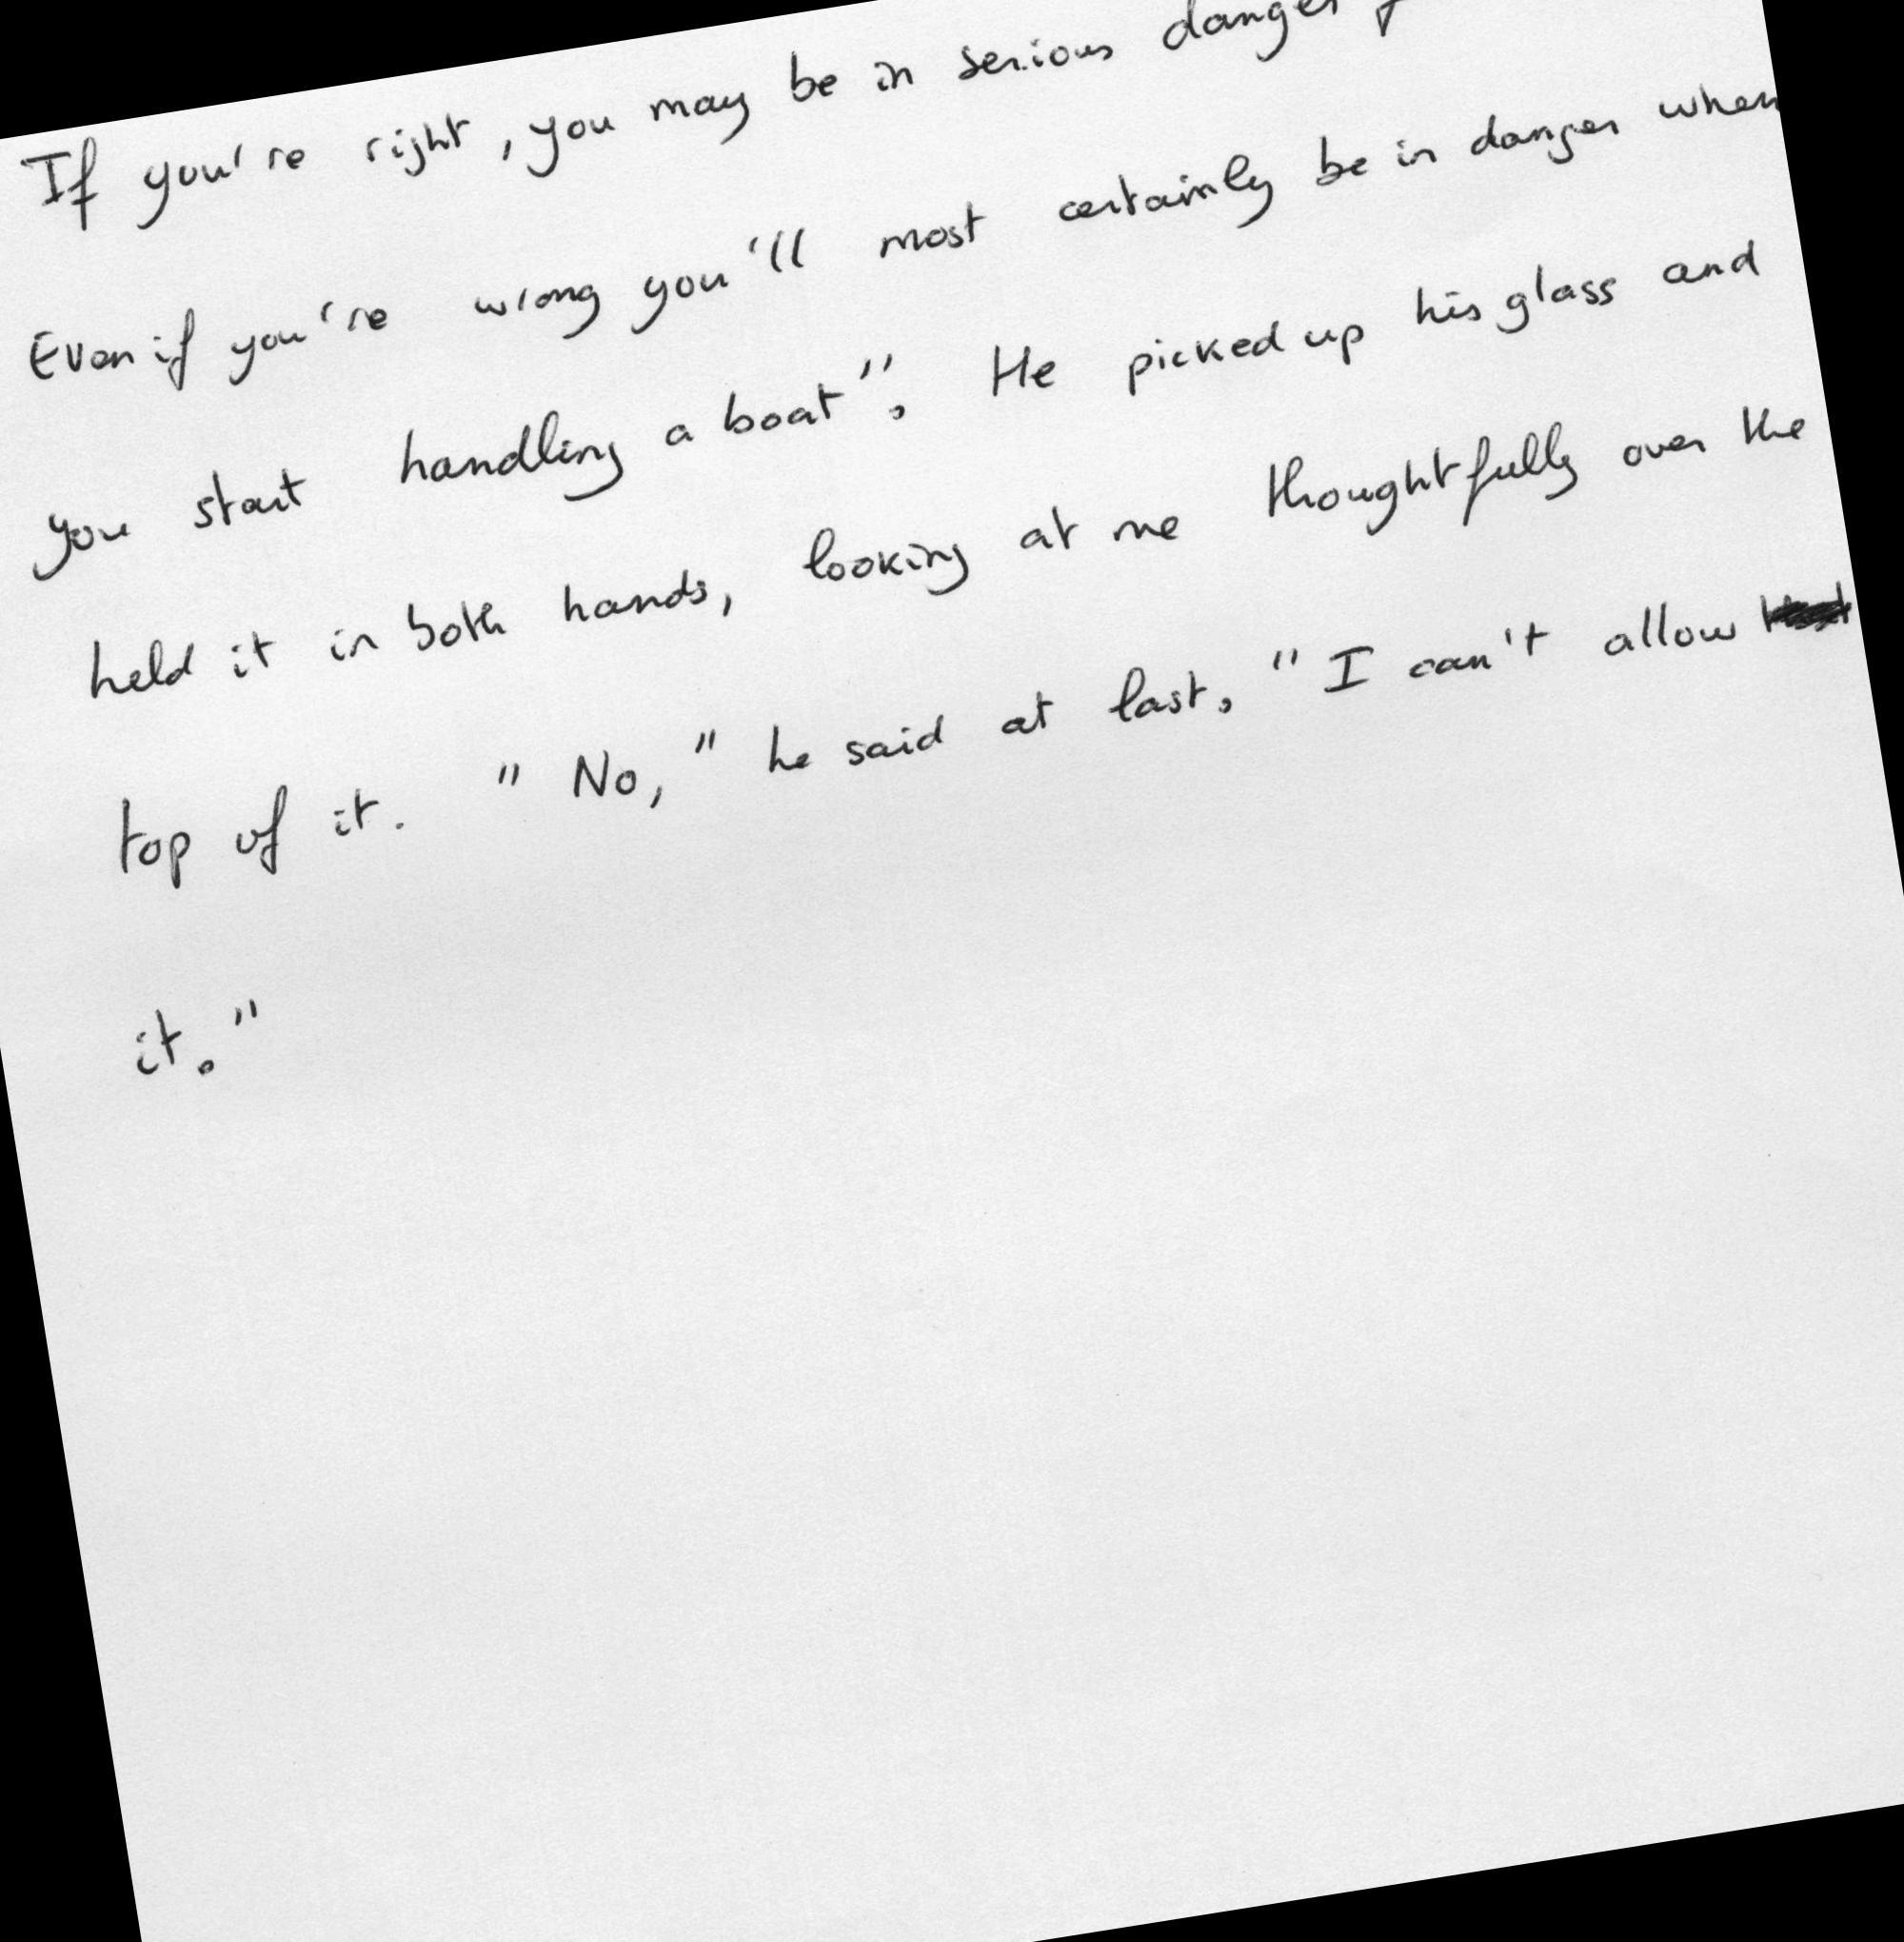 If you're right, you may be in serious danger
Even if you're wrong you'll most certainly be in danger when
you start handling a boat". He picked up his glass and
held it in both hands, looking at me thoughtfully over the
top of it. "No," he said at last, "I can't allow
it."